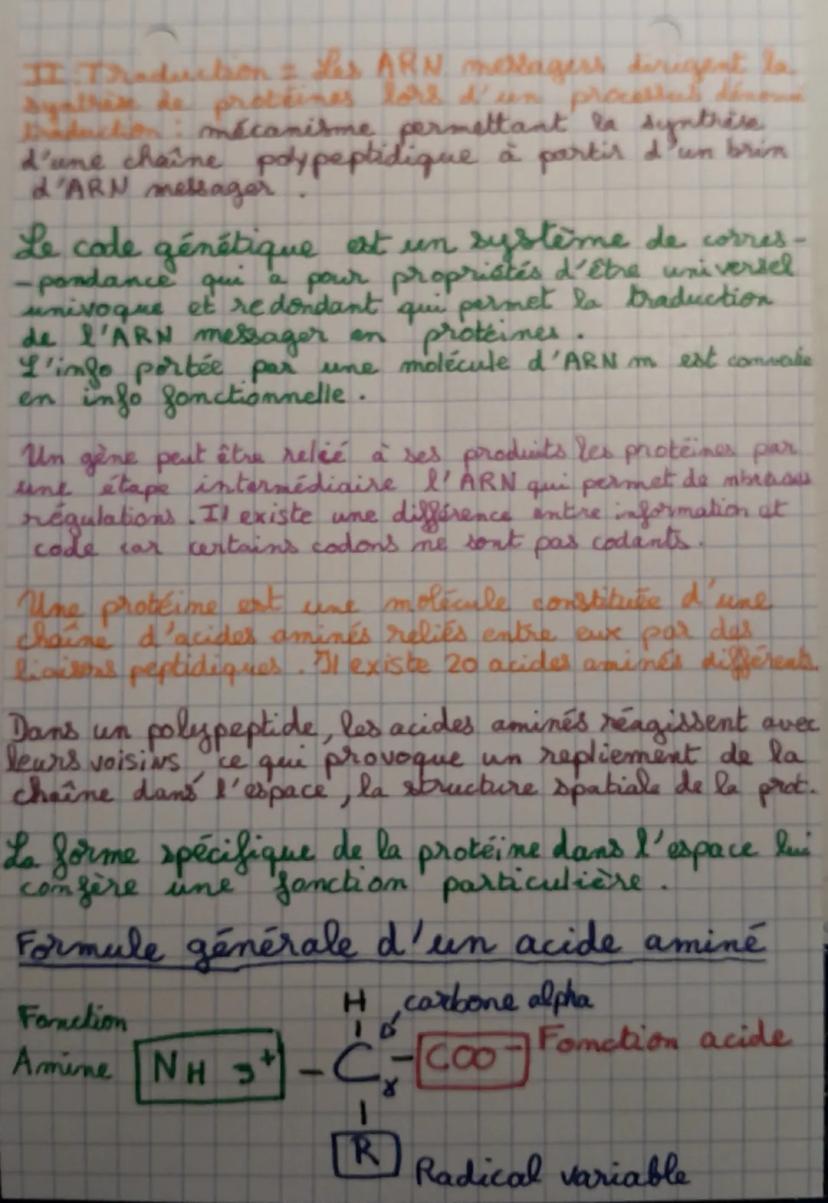 II Traduction = Les ARN messagers dirigent la
synthèse de protéines lors d'un processus dénommé
traduction : mécanisme permettant la synthèse
d'une chaîne polypeptidique à partir d'un brin
d'ARN messager .
Le code génétique est un système de corres-
-pondance qui a pour propriétés d'être universel
univoque et redondant qui permet la traduction
de l'ARN messager en protéines .
L'info portée par une molécule d'ARN m est
en info fonctionnelle .
Un gène peut être relié à ses produits les protéines par
une étape intermédiaire l'ARN qui permet de
régulations . Il existe une différence entre information et
code car certains codons ne sont pas codants .
Une protéine est une molécule constituée d'une
chaîne d'acides aminés reliés entre eux par des
liaisons peptidiques . Il existe 20 acides aminés différents
Dans un polypeptide, les acides aminés réagissent avec
leurs voisins, ce qui provoque un repliement de la
chaîne dans l'espace, la structure spatiale de la prot.
La forme spécifique de la protéine dans l'espace lui
confère une fonction particulière .
Formule générale d'un acide aminé
H carbone alpha
Fonction
Amine NH 3+ - C α - COO- Fonction acide
R Radical variable